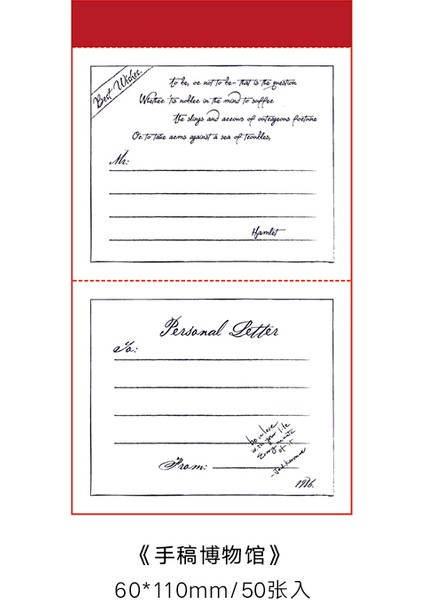 Best Wishes
to be, or not to be- that is the question
Whether 'tis nobler in the mind to suffer
the slings and arrows of outrageous fortune
Or to take arms against a sea of troubles,
Mr:
Hamlet
Personal Letter
To:
be in love
with your life
Every minute
of it
From:
1926.
《手稿博物馆》
60*110mm/50张入